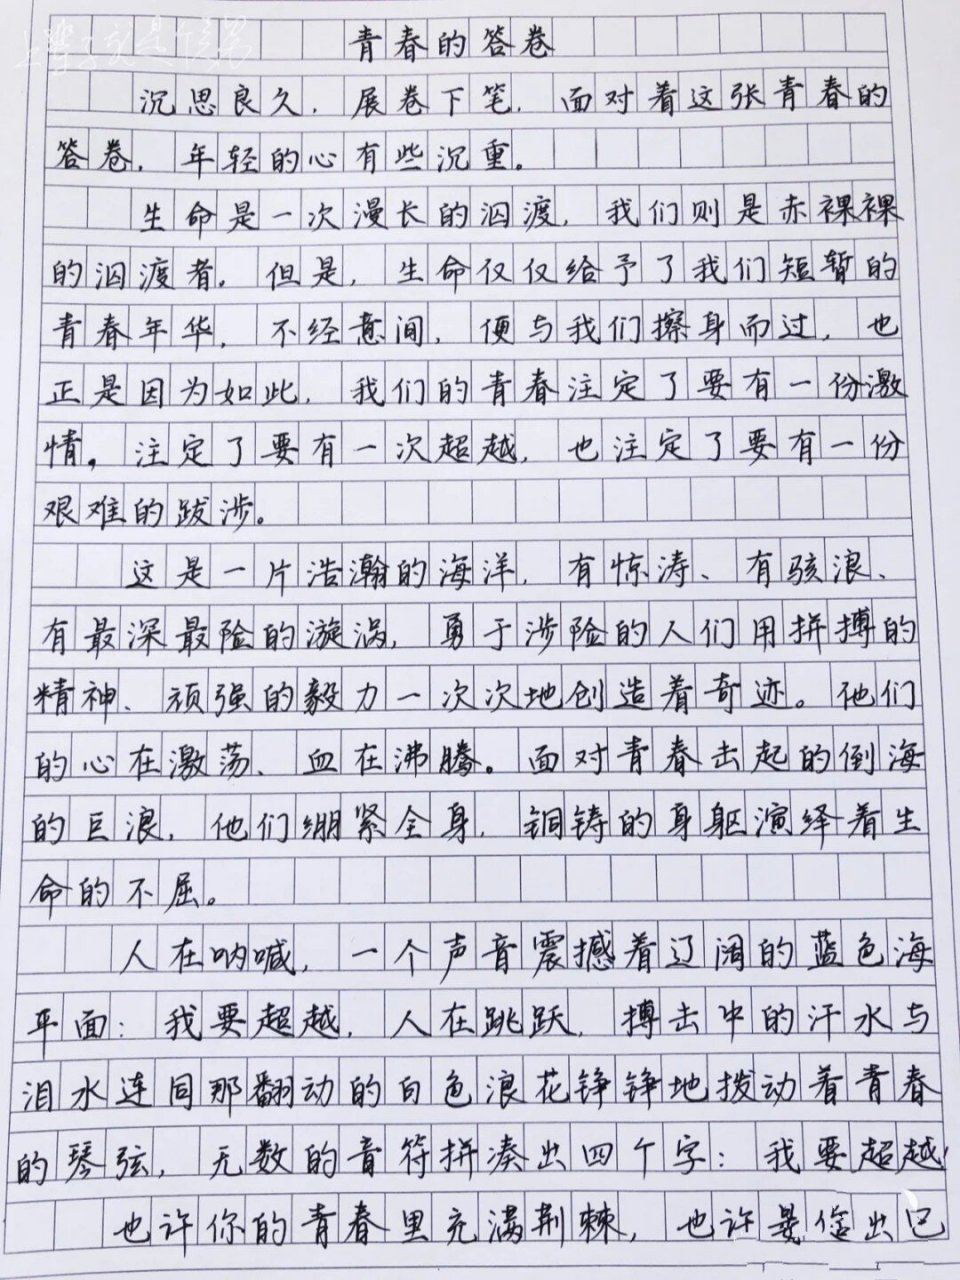 青春的答卷
沉思良久，展卷下笔，面对着这张青春的
答卷，年轻的心有些沉重。
生命是一次漫长的泅渡，我们则是赤裸裸
的泅渡者。但是，生命仅仅给予了我们短暂的
青春年华，不经意间，便与我们擦身而过，也
正是因为如此，我们的青春注定了要有一份激
情，注定了要有一次超越，也注定了要有一份
艰难的跋涉。
这是一片浩瀚的海洋，有惊涛、有骇浪、
有最深最险的漩涡，勇于涉险的人们用拼搏的
精神、顽强的毅力一次次地创造着奇迹。他们
的心在激荡、血在沸腾。面对青春击起的倒海
的巨浪，他们绷紧全身，铜铸的身躯演绎着生
命的不屈。
人在呐喊，一个声音震撼着辽阔的蓝色海
平面：我要超越，人在跳跃，搏击中的汗水与
泪水连同那翻动的白色浪花铮铮地拨动着青春
的琴弦，无数的音符拼凑出四个字：我要超越！
也许你的青春里充满荆棘，也许是